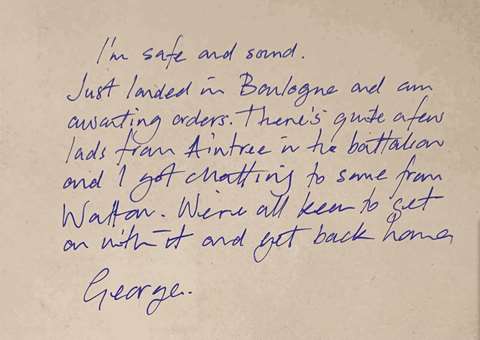 I'm safe and sound.
Just landed in Boulogne and am
awaiting orders. There's quite a few
lads from Aintree in the battalion
and I got chatting to some from
Walton. We're all keen to get
on with it and get back home
George.